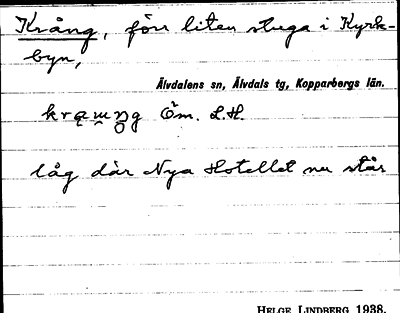 Krång, förr liten stuga i Kyrk-
byn,
Älvdalens sn, Älvdals tg, Kopparbergs län.
Öm. L.H.
låg där Nya Hotellet nu står
HELGE LINDBERG 1938.